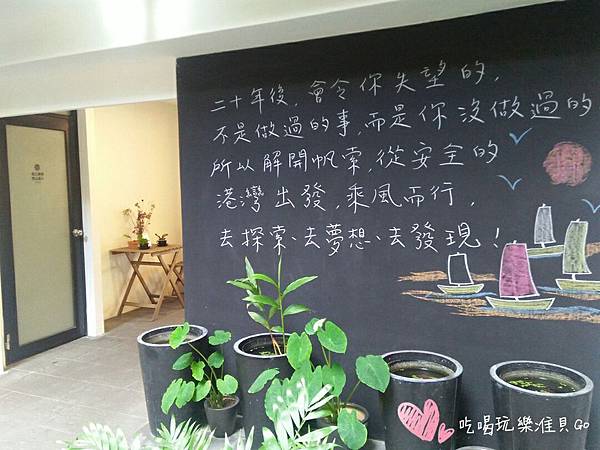 二十年後，會令你失望的，
不是做過的事，而是你沒做過的
所以解開帆索，從安全的
港灣出發，乘風而行，
去探索、去夢想、去發現！
吃喝玩樂准貝Go